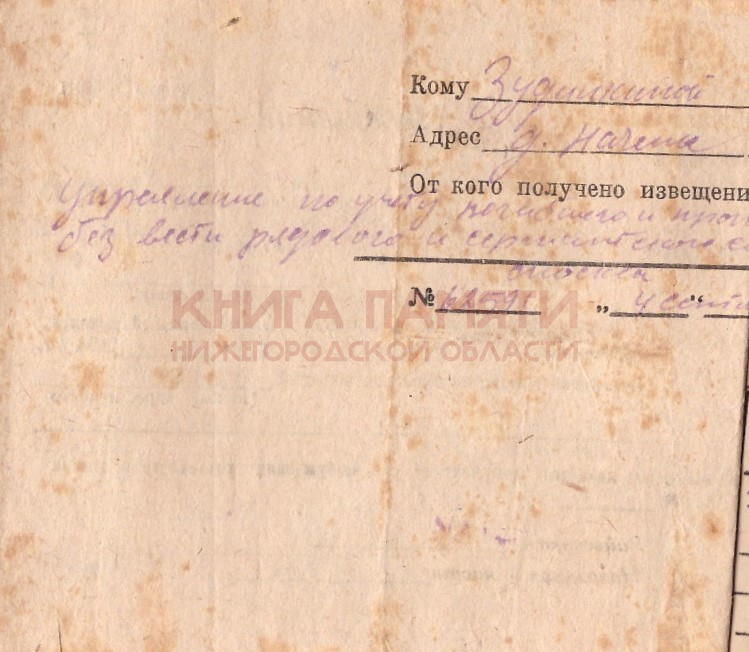 Кому Зудинкиной
Адрес д. Начена
От кого получено извещени
Управление по учету погибшего и проп
без вести рядового и сержантского с
г. Москва
№ „ 4 “ сентя
КНИГА ПАМЯТИ
НИЖЕГОРОДСКОЙ ОБЛАСТИ